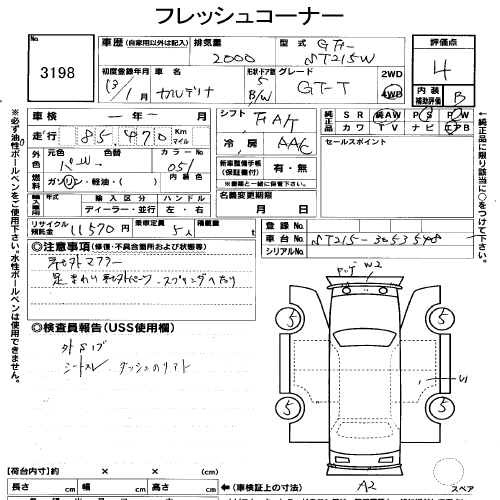 フレッシュコーナー
No.
3198
車歴 (自家用以外は記入)
排気量
2000
型式
GH-
ST215W
評価点
4
内装
補助評価
B
初度登録年月
13/1月
車名
カルディナ
形状・ドア数
5
B/W
グレード
GT-T
2WD
4WD
車検
ー年ー月
走行
85,470
Km
マイル
シフト
FAT
冷房
AAC
純正品
SR
純AW
PS
PW
カワ
TV
ナビ
エアB
セールスポイント
外色
元色
色替
カラーNo
051
燃料
ガソリン・軽油・( )
内装色
新車整備手帳
(保証書付)
有・無
※書類と一緒に保管下さい。
名義変更期限
月 日
輸入車用
輸入区分
ハンドル
ディーラー・並行
左・右
リサイクル
預託金
11570円
乗車定員
5人
積載量
t
登録No
車台No
ST215-
シリアルNo
◎注意事項(修復・不具合箇所および状態等)
社外マフラー
足まわり社外パーツ・スプリングへたり
◎検査員報告(USS使用欄)
外Sブ
シートスレ ダッシュのリフト
※必ず油性ボールペンをご使用下さい。水性ボールペンは使用できません。
←純正品に限り該当に○をつけて下さい。
W2
5
5
5
5
U1
A2
スペア
【荷台内寸】約 × × (cm)
長さ cm 幅 cm 高さ cm
←(車検証上の寸法)